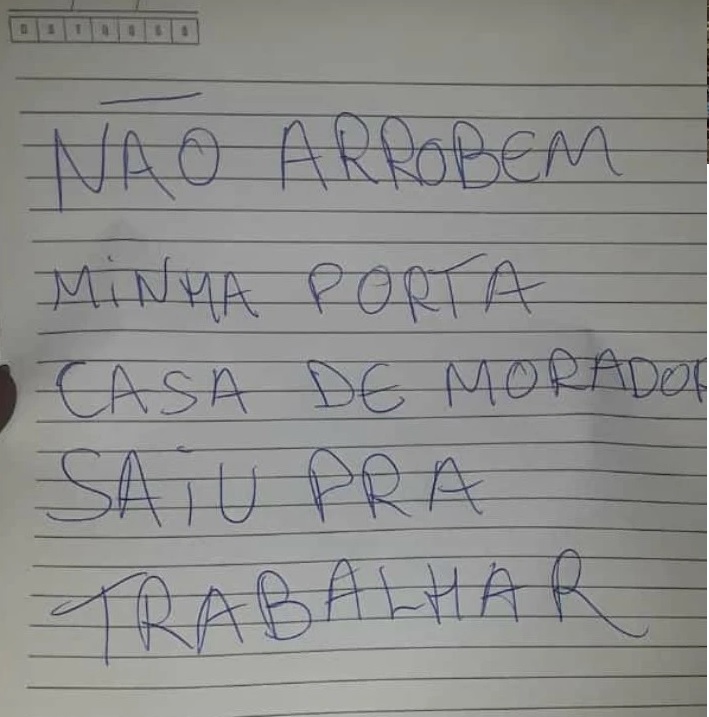 D S T Q Q S S
NÃO ARROBEM
MINHA PORTA
CASA DE MORADOR
SAIU PRA
TRABALHAR